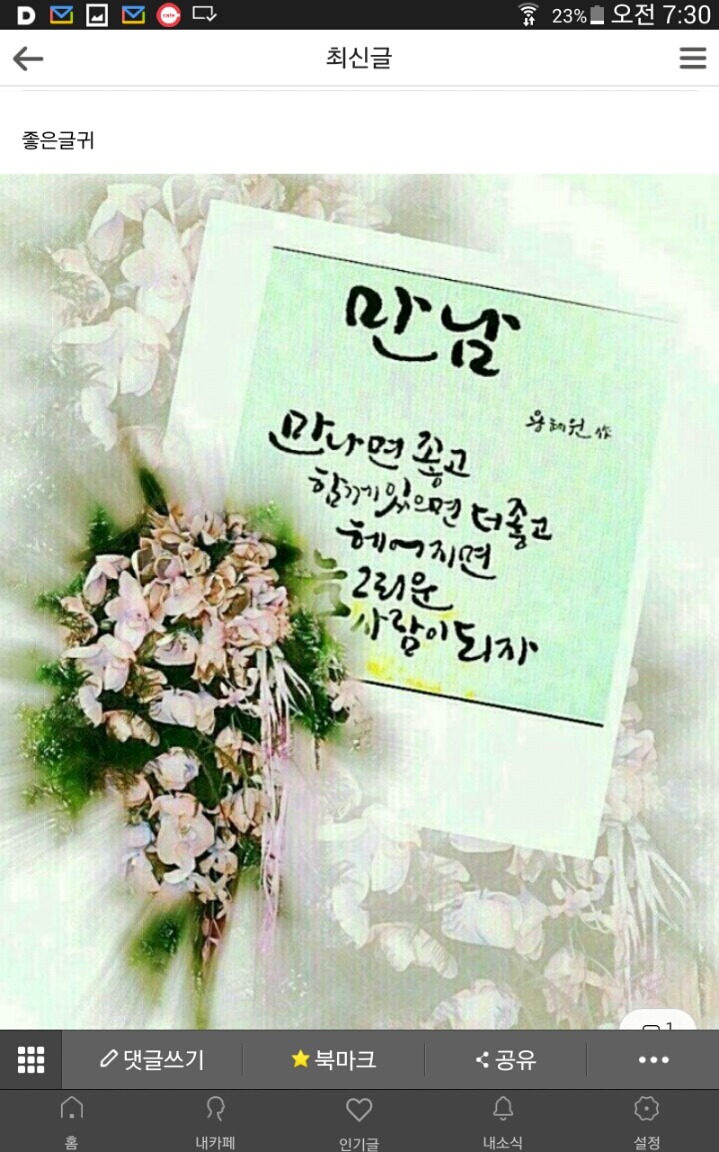 23% 오전 7:30
최신글
좋은글귀
만남
용혜원 作
만나면 좋고
함께 있으면 더 좋고
헤어지면
그리운
사람이 되자
1
댓글쓰기 북마크 공유
홈 내카페 인기글 내소식 설정